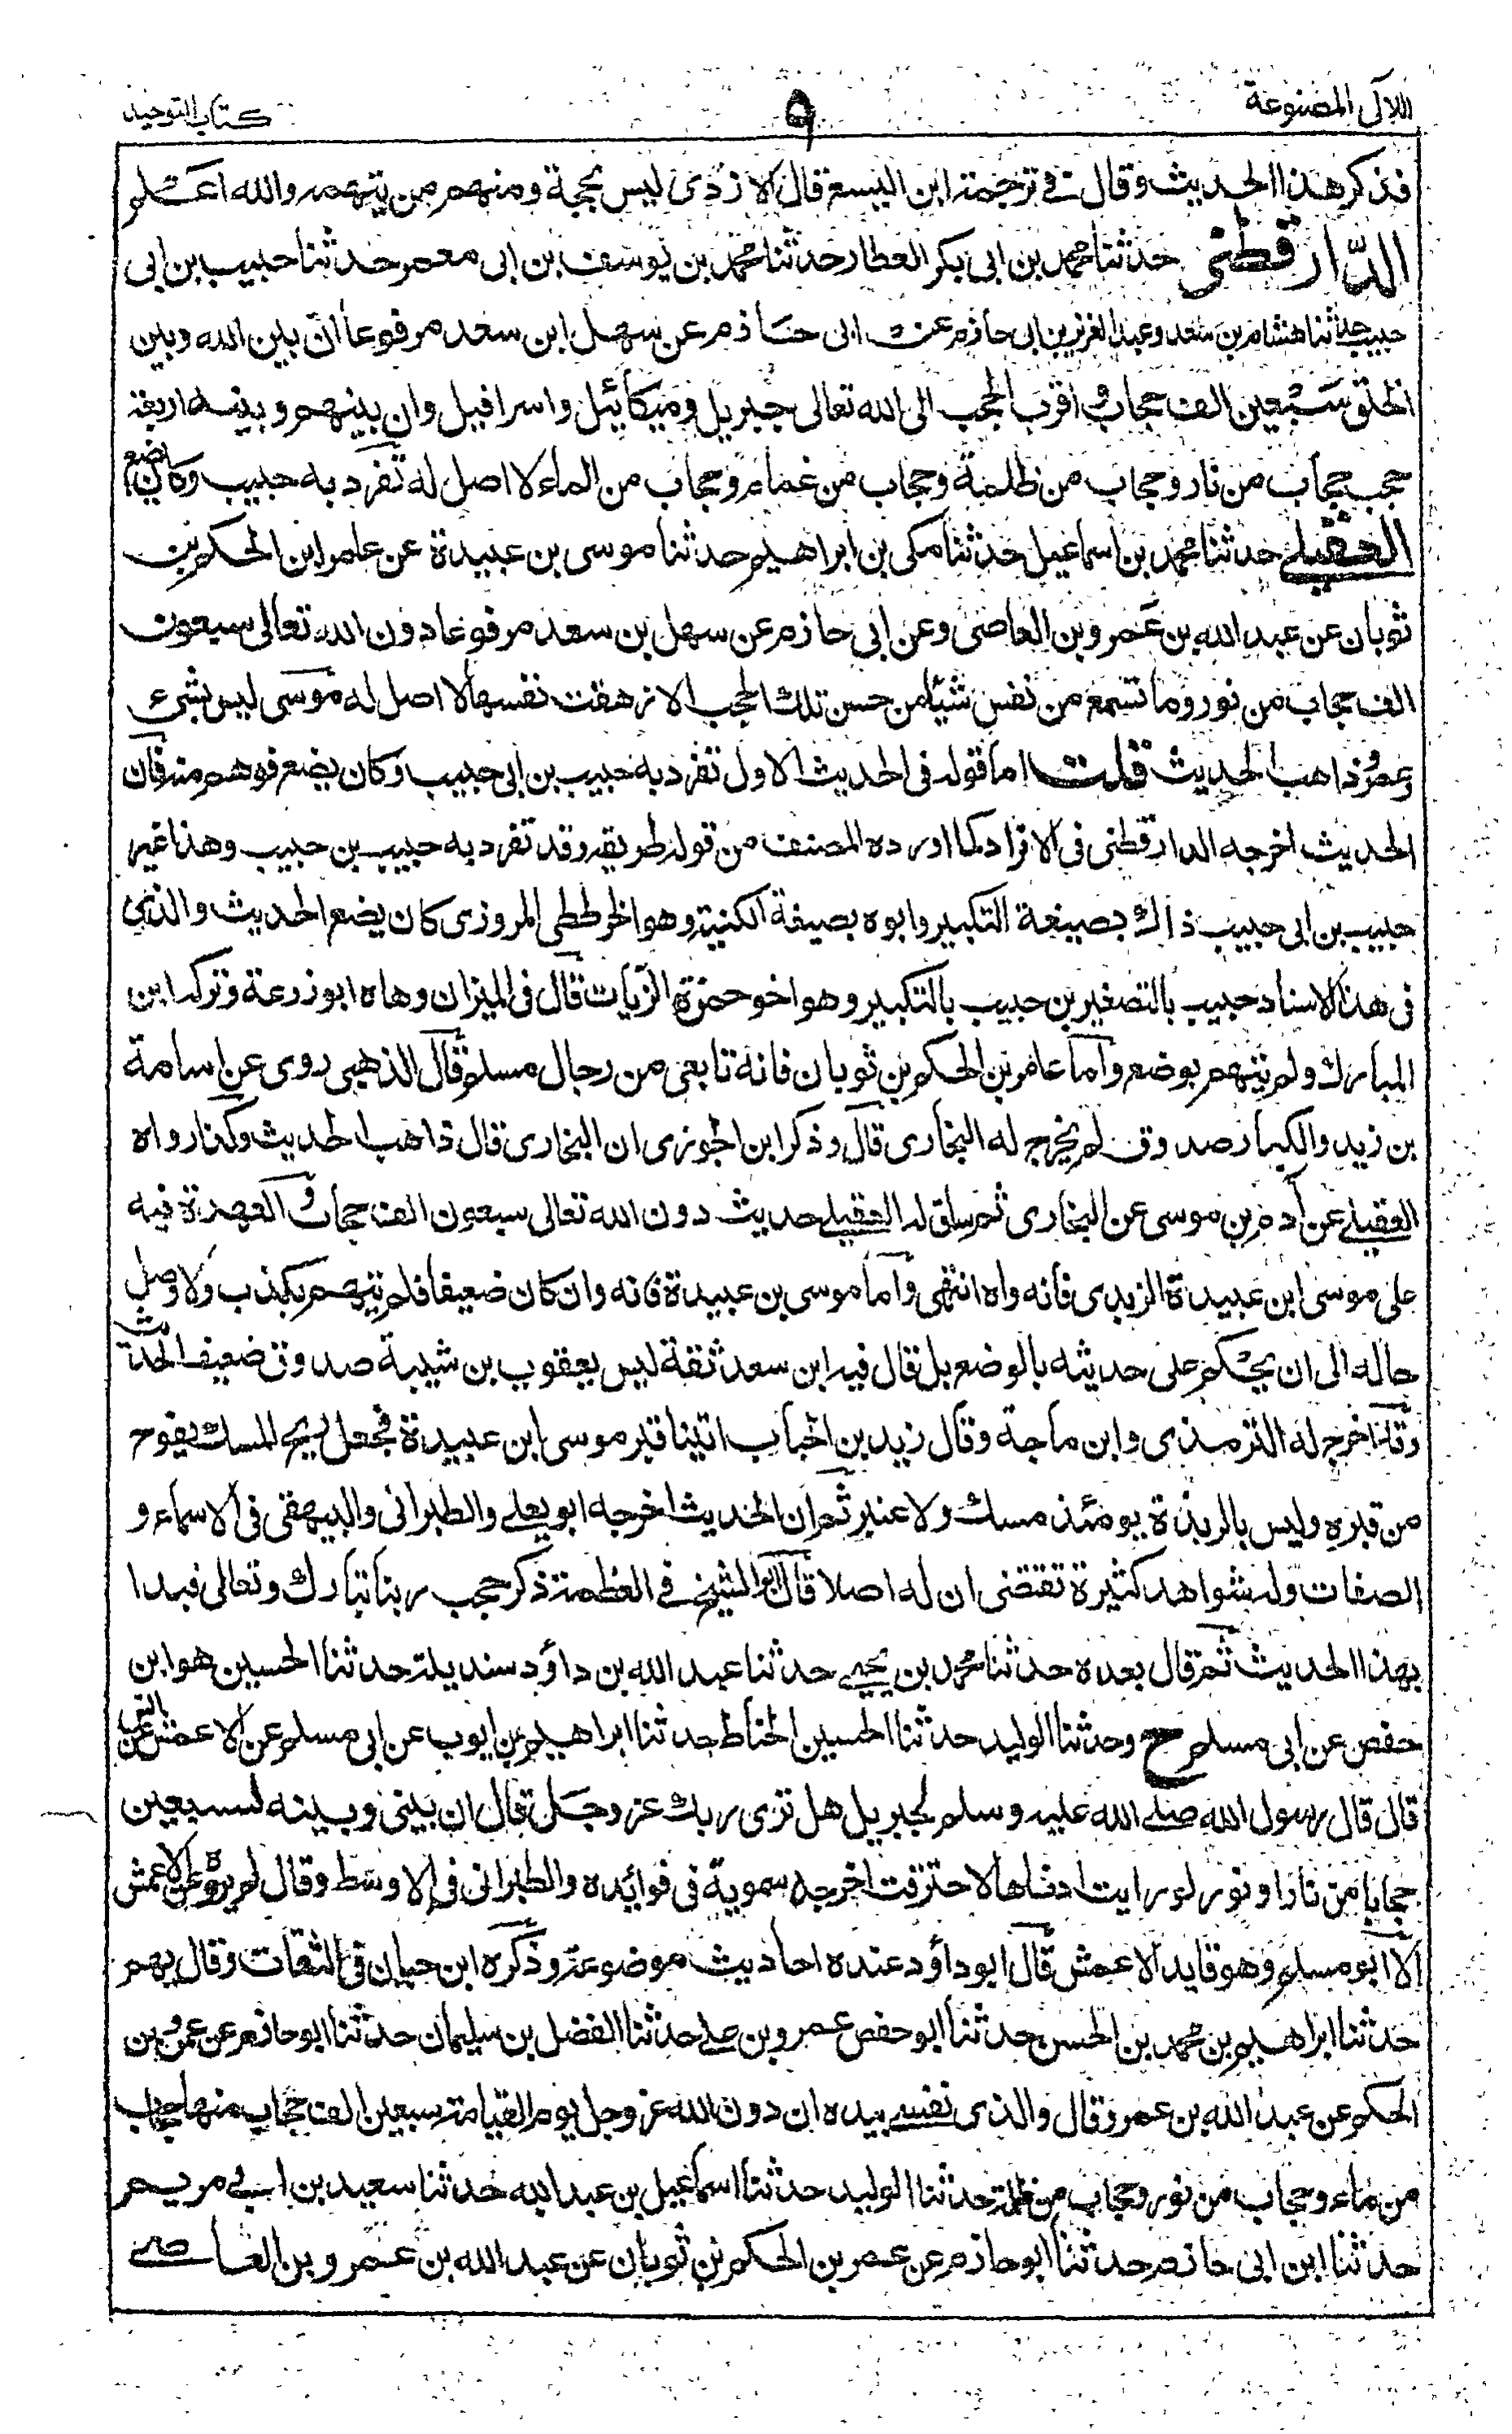 اللآلى المصنوعة
٩
كتاب التوحيد
فذكر هذا الحديث وقال فى ترجمة ابن اليسع قال الازدى ليس بحجة ومنهم من يتهمه والله اعلم
الدّارقطنى حدثنا محمد بن ابى بكر العطار حدثنا محمد بن يوسف بن ابى معمر حدثنا حبيب بن ابى
حبيب حدثنا هشام بن سعد وعبد العزيز بن ابى حازم عن ابى حازم عن سهل ابن سعد مرفوعا ان بين الله وبين
الخلق سبعين الف حجاب واقرب الحجب الى الله تعالى جبريل وميكائيل واسرافيل وان بينهم وبينه اربعة
حجب حجاب من نار وحجاب من ظلمة وحجاب من غمام وحجاب من الماء لا اصل له تفرد به حبيب وكان يضع
العقيلى حدثنا محمد بن اسماعيل حدثنا مكى بن ابراهيم حدثنا موسى بن عبيدة عن عامر ابن الحكم بن
ثوبان عن عبد الله بن عمرو بن العاصى وعن ابى حازم عن سهل بن سعد مرفوعا دون الله تعالى سبعون
الف حجاب من نور وما تسمع من نفس شيئا من حسن تلك الحجب الا زهقت نفسها لا اصل له موسى ليس بشىء
وعمر ذاهب الحديث قلت اما قوله فى الحديث الاول تفرد به حبيب بن ابى حبيب وكان يضع فوهم منه فان
الحديث اخرجه الدارقطنى فى الافراد كما اورده المصنف من قوله طريقه وقد تفرد به حبيب بن حبيب وهذا غير
حبيب بن ابى حبيب ذاك بصيغة التكبير وابوه بصيغة الكنية وهو الخرططى المروزى كان يضع الحديث والذى
فى هذا الاسناد حبيب بالتصغير بن حبيب بالتكبير وهو اخو حمزة الزيات قال فى الميزان وهاه ابو زرعة وتركه ابن
المبارك ولم يتهم بوضع واما عامر بن الحكم بن ثوبان فانه تابعى من رجال مسلم قال الذهبى روى عن اسامة
بن زيد والكبار صدوق لم يخرج له البخارى قال وذكر ابن الجوزى ان البخارى قال ذاهب الحديث وكذا رواه
العقيلى عن آدم بن موسى عن البخارى ثم ساق له العقيلى حديث دون الله تعالى سبعون الف حجاب والعهدة فيه
على موسى ابن عبيدة الزبدى فانه واه انتهى واما موسى بن عبيدة فانه وان كان ضعيفا فلم يتهم بكذب ولا وصل
حاله الى ان يحكم على حديثه بالوضع بل قال فيه ابن سعد ثقة ليس يعقوب بن شيبة صدوق ضعيف الحديث
وقد اخرج له الترمذى وابن ماجة وقال زيد بن اخباب اتينا قبر موسى ابن عبيدة فجعل ريح المسك يفوح
من قبره وليس بالربذة يومئذ مسك ولا عنبر ثم ان الحديث اخرجه ابو يعلى والطبرانى والبيهقى فى الاسماء و
الصفات وله شواهد كثيرة تقتضى ان له اصلا قال ابو الشيخ فى العظمة ذكر حجب ربنا تبارك وتعالى فبدا
بهذا الحديث ثم قال بعده حدثنا محمد بن يحيى حدثنا عبد الله بن داؤد سنديلة حدثنا الحسين هو ابن
حفص عن ابى مسلم ح وحدثنا الوليد حدثنا الحسين الحناط حدثنا ابراهيم بن ايوب عن ابى مسلم عن الاعمش عن
قال قال رسول الله صلى الله عليه وسلم لجبريل هل ترى ربك عز وجل قال ان بينى وبينه لسبعين
حجابا من نار او نور لو رايت ادناها لاحترقت اخرجه سموية فى فوائده والطبرانى فى الاوسط وقال لم يروه عن الاعمش
الا ابو مسلم وهو قايد الاعمش قال ابو داؤد عنده احاديث موضوعة وذكره ابن حبان فى الثقات وقال يهم
حدثنا ابراهيم بن محمد بن الحسن حدثنا ابو حفص عمرو بن على حدثنا الفضل بن سليمان حدثنا ابو حازم عن عمرو بن
الحكم عن عبد الله بن عمرو قال والذى نفسى بيده ان دون الله عز وجل يوم القيامة سبعين الف حجاب منها حجاب
من ماء وحجاب من نور وحجاب من ظلمة حدثنا الوليد حدثنا اسماعيل بن عبد الله حدثنا سعيد بن ابى مريم
حدثنا ابن ابى حازم حدثنا ابو حازم عن عمر بن الحكم بن ثوبان عن عبد الله بن عمرو بن العاصى